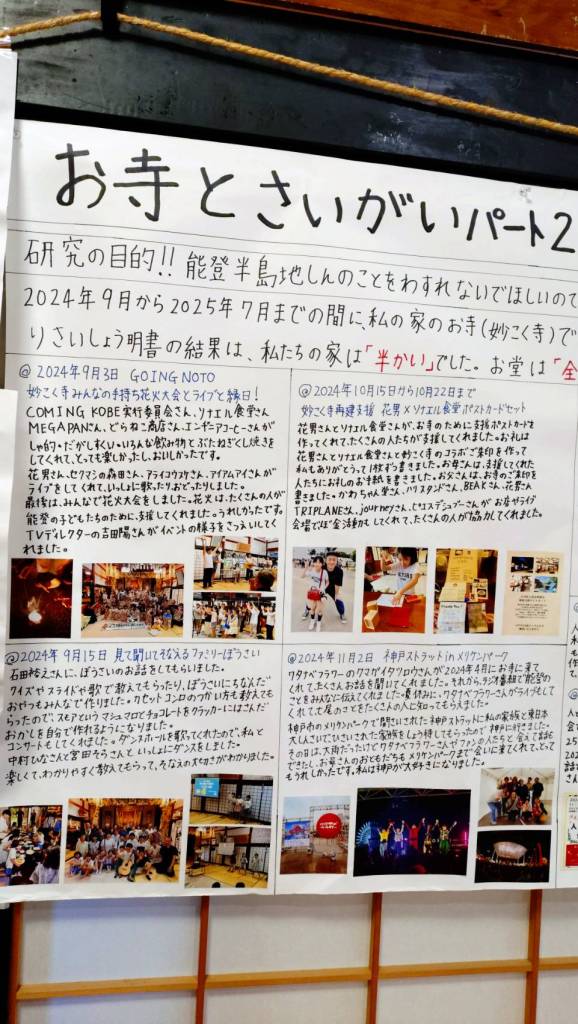 お寺とさいがいパート2
研究の目的!! 能登半島地しんのことをわすれないでほしいので
2024年9月から2025年7月までの間に、私の家のお寺(妙こく寺)で
りさいしょう明書の結果は、私たちの家は「半かい」でした。お堂は「全
@ 2024年9月3日 GOING NOTO
妙こく寺みんなの手持ち花火大会とライブと縁日!
COMING KOBE実行委員会さん、リナエル食堂さん
MEGAPANさん、どらねこ商店さん、エンヂニアコーヒーさんが
しゃ的・だがし釣くじ・いろんな飲み物とぶたねぎくし焼きを
してくれて、とっても楽しかったし、おいしかったです。
花男さん、セクマシの森田さん、アライコウスケさん、アイアムアイさんが
ライブをしてくれて、いっしょに歌ったりおどったりしました。
最後は、みんなで花火大会をしました。花火は、たくさんの人が
能登の子どもたちのために、支援してくれました。うれしかったです。
TVディレクターの吉田陽さんがイベントの様子をさつえいしてく
れました。
@ 2024年10月15日から10月22日まで
妙こく寺再建支援 花男×リナエル食堂ポストカードセット
花男さんとリナエル食堂さんが、お寺のために支援ポストカードを
作ってくれて、たくさんの人たちが支援してくれました。お礼は
花男さんとリナエル食堂さんと妙こく寺のコラボご朱印を作って
私もありがとうって1枚ずつ書きました。お母さんは、支援してくれた
人たちにお礼のお手紙を書きました。お父さんは、お寺のご朱印を
書きました。かわちゃん堂さん、ハリスタンドさん、BEAとさん、花男さん
TRIPLANEさん、journeyさん、ピエスデシュブーさんが お寺やライブ
会場でぼ金活動もしてくれて、たくさんの人が協力してくれました。
@ 2024年9月15日 見て聞いてそなえるファミリーぼうさい
石田裕之さんに、ぼうさいのお話をしてもらいました。
クイズやスライドや歌で教えてもらったり、ぼうさいにちなんだ
おやつもみんなで作りました。カセットコンロのつかい方も教えても
らったので、スモアというマシュマロとチョコレートをクラッカーにはさんだ
おかしを自分で作れるようになりました。
コンサートもしてくれました。ダンスホールを歌ってくれたので、私と
中村ひなさんと宮田そらさんと いっしょにダンスをしました。
楽しくて、わかりやすく教えてもらって、そなえの大切さがわかりました。
@ 2024年11月2日 神戸ストラット in メリケンパーク
ワタナベフラワーのクマガイタツロウさんが2024年4月にお寺に来て
くれて、たくさんお話を聞いてくれました。それから、ラジオ番組で能登の
ことをみんなに伝えてくれました。夏休みに、ワタナベフラワーさんがライブをして
くれて、七尾のことをたくさんの人に知ってもらえました。
神戸市のメリケンパークで開さいされた神戸ストラットに私の家族と東日本
大しんさいでひさいされた家族をしょう待してもらったので 神戸に行きました。
その日は、大雨だったけどワタナベフラワーさんやファンの人たちと 会えて話も
できたし、お母さんのおともだちも メリケンパークまで会いに来てくれて、とって
もうれしかったです。私は神戸が大好きになりました。